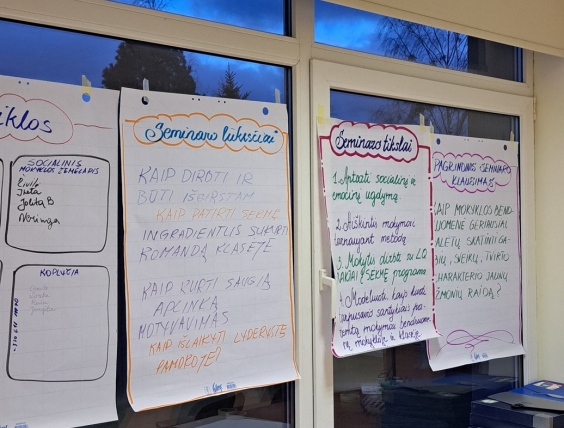 iklos
SOCIALINIS
MOKYKLOS ŽEMĖLAPIS
Živilė
Justa
Jolita B
Neringa
KOPLYČIA
Seminaro lūkesčiai
KAIP DIRBTI IR
BŪTI IŠGIRSTAM
KAIP PATIRTI SĖKMĘ
INGREDIENTUS SUKURTI
KOMANDĄ KLASĖJE
KAIP KURTI SAUGIĄ
APLINKĄ
MOTYVAVIMAS
KAIP IŠLAIKYTI LYDERYSTĘ
PAMOKOJE?
Seminaro tikslai
1. Aptarti socialinį ir
emocinį ugdymą.
2. Aiškintis mokymosi
tarnaujant metodą
3. Mokytis dirbti su LQ
RAKTAI Į SĖKMĘ programa
4. Modeliuoti, kaip kurti
tarpusavio santykiais pa-
remtą mokymosi bendruome-
nę mokykloje ir klasėje.
PAGRINDINIS SEMINARO
KLAUSIMAS
KAIP MOKYKLOS BEND-
UOMENĖ GERIAUSIAI
ALĖTŲ SKATINTI GA-
BIŲ, SVEIKŲ, TVIRTO
CHARAKTERIO JAUNŲ
ŽMONIŲ RAIDĄ?